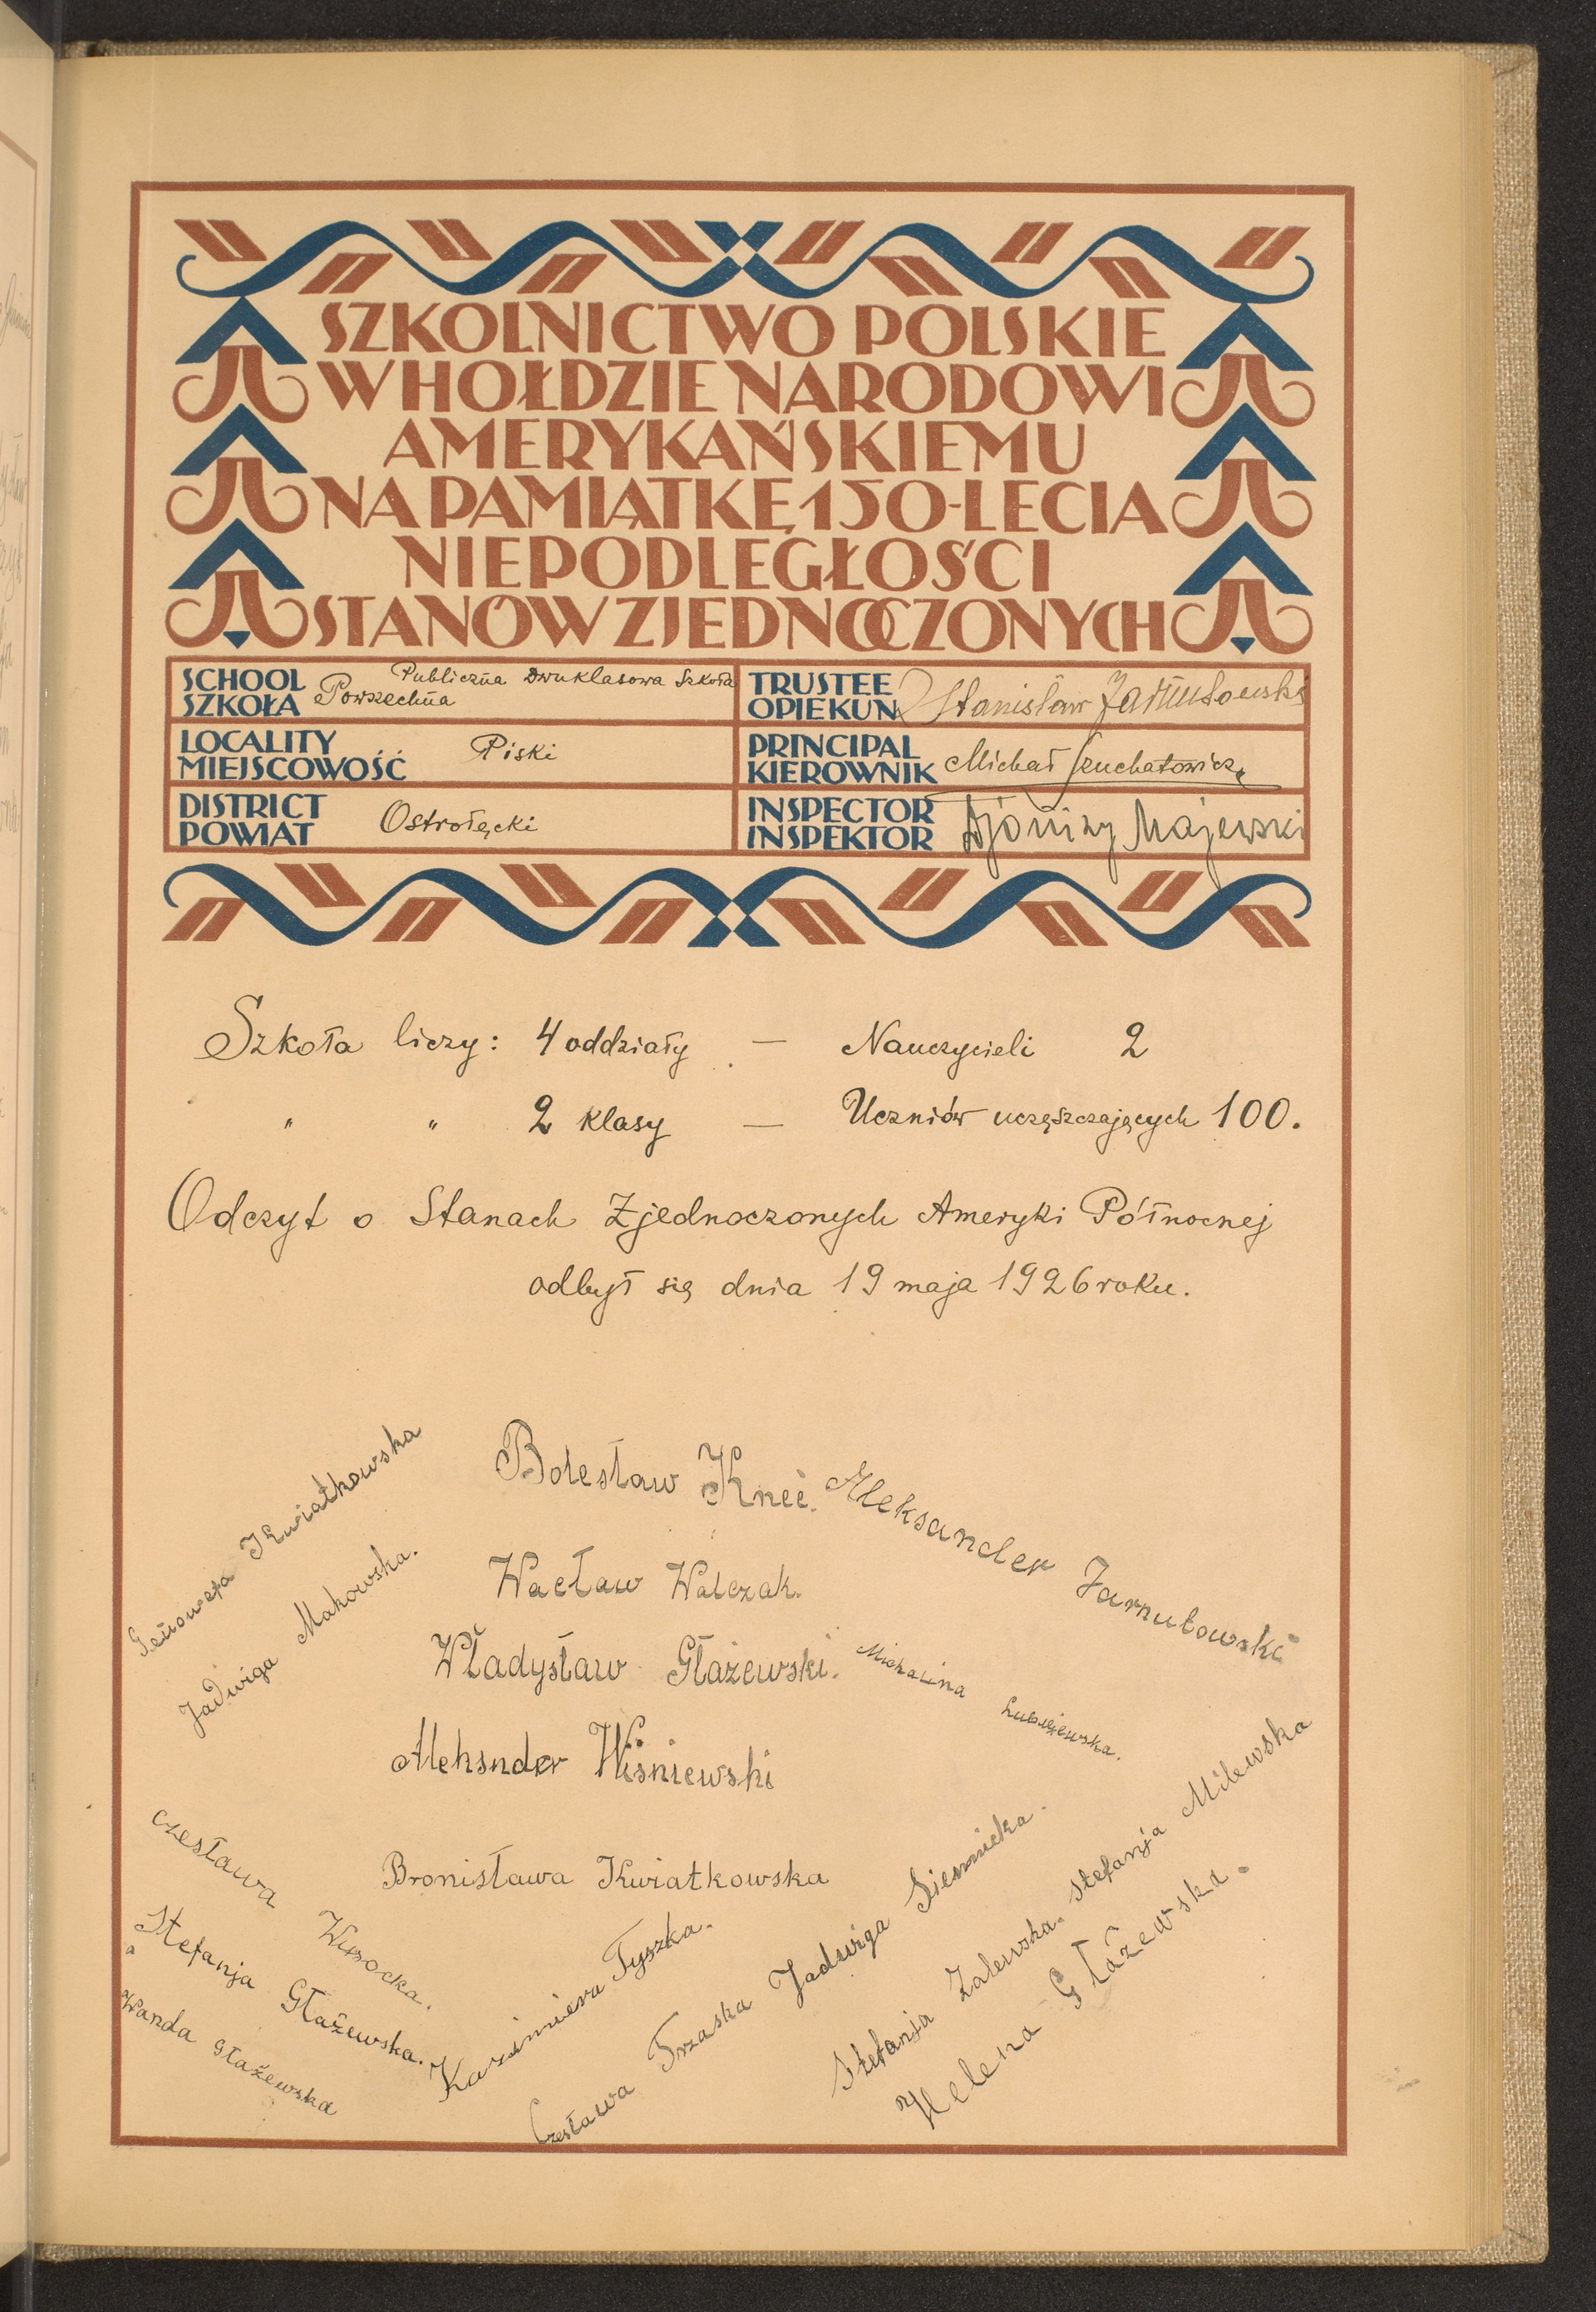 SZKOLNICTWO POLSKIE
W HOŁDZIE NARODOWI
AMERYKAŃSKIEMU
NA PAMIĄTKĘ 150-LECIA
NIEPODLEGŁOŚCI
STANÓW ZJEDNOCZONYCH
SCHOOL
SZKOŁA
Publiczna Dwuklasowa Szkoła
Powszechna
TRUSTEE
OPIEKUN
Stanisław Jarnutowski
LOCALITY
MIEJSCOWOŚĆ
Piski
PRINCIPAL
KIEROWNIK
Michał Szuchatowicz
DISTRICT
POWIAT
Ostrołęcki
INSPECTOR
INSPEKTOR
Majewski
Szkoła liczy: 4 oddziały — Nauczycieli 2
" " 2 klasy — Uczniów uczęszczających 100.
Odczyt o Stanach Zjednoczonych Ameryki Północnej
odbył się dnia 19 maja 1926 roku.
Genowefa Kwiatkowska
Jadwiga Makowska.
Bolesław Kneć.
Aleksander Jarnutowski
Wacław Walczak.
Władysław Głażewski.
Michalina
Aleksnder Wiśniewski
Bronisława Kwiatkowska
Czesława Wysocka.
Stefanja Głażewska.
Wanda Głażewska
Kazimiera Tyszka.
Czesława Trzaska
Jadwiga Siemicka.
Stefanja Zalewska.
Stefanja Milewska
Helena Głażewska.